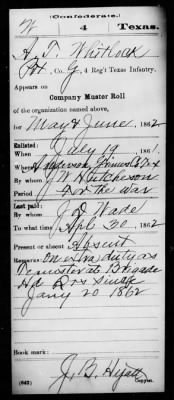 (Confederate.)
W 4 Texas.
A. T. Whitlock
Pvt, Co. G, 4 Reg't Texas Infantry.
Appears on
Company Muster Roll
of the organization named above,
for May & June, 1862.
Enlisted:
When July 19, 1861.
Where Anderson, Grimes Co Tex
By whom J. W. Hutcheson
Period For the war
Last paid:
By whom J. D. Wade
To what time Apl 30, 1862
Present or absent Absent
Remarks: on extra duty as
Teamster at Brigade
Hd Qrs since
Jany 20 1862
Book mark:
(642) J. B. Hyatt
Copyist.